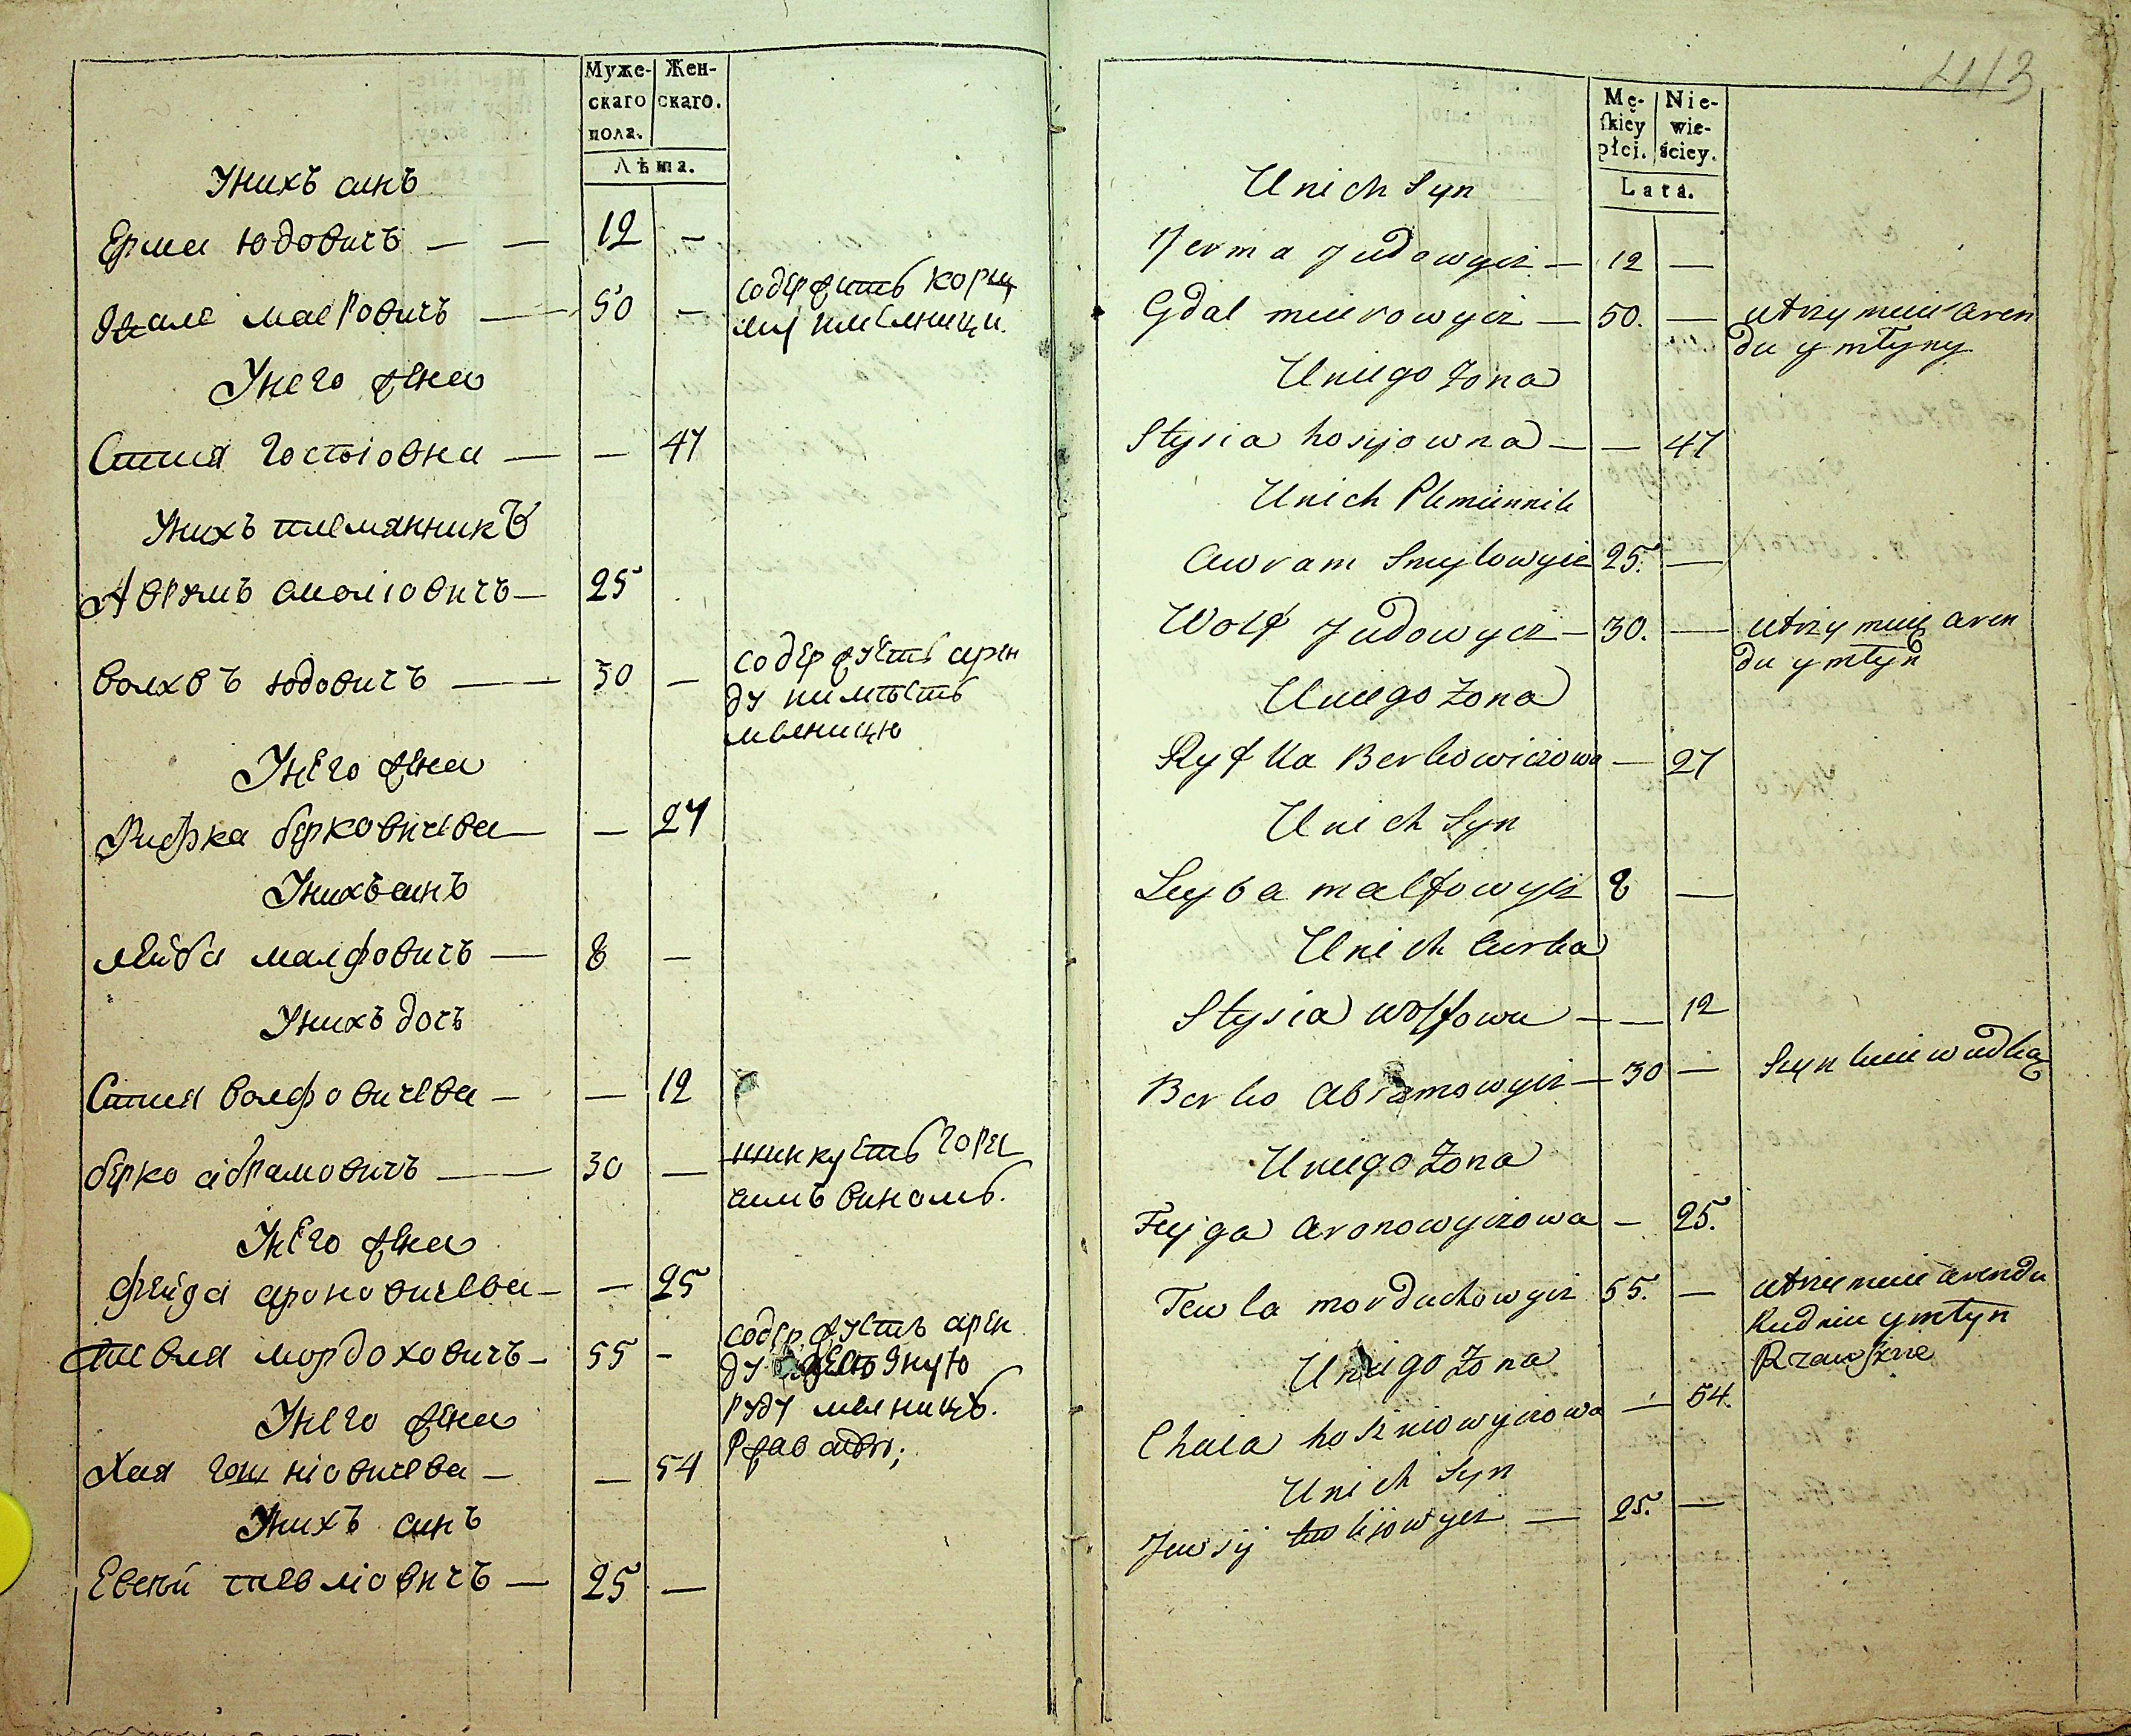 Муже-
скаго
пола.
Жен-
скаго.
Лѣта.
Унихъ синъ
Ерма юдовичъ — — 12 —
маеровичъ — 50 — содержитъ корч
му
Унего жена
Стися — — 47
Унихъ племянникъ
Аврамъ — 25
Волхвъ юдовичъ — 30 — содержуетъ арен
ду
мленицю
Унего жена
Рифка берковичева — — 27
Унихъ синъ
Лейба малфовичъ — 8 —
Унихъ дочъ
Стися волфовичева — — 12
берко абрамовичъ — 30 — шинкуетъ горе
чимъ виномъ.
Унего жена
фейга ароновичева — — 25
тевля мордоховичъ — 55 — содержуетъ арен
ду
руду
Унего жена
Хая — — 54
Унихъ синъ
Евсей тевлiовичъ — 25 —
413
Mę-
ſkiey
płci.
Nie-
wie-
ściey.
Lata.
Unich Syn
Jerma Judowycz — 12 —
Gdal meierowycz — 50. — utrzymuie aren
du y młyny
Uniego Żona
Stysia hosijowna — — 47
Unich Plemiennik
Awram Smylowycz 25. —
Wolf Judowycz — 30. — utrzymuię aren
du y młyn
Uniego Żona
Ryfka Berkowiczowa — 27
Unich Syn
Leyba malfowycz 8 —
Unich Curka
Stysia wolfowa — — 12
Berko Abramowycz — 30 — Szynkuie wudką
Uniego Żona
Feyga Aronowyczowa — 25.
Tewla morduchowycz 55. — utrzymuie arendu
Rudniu y młyn
Uniego Żona
Chaia — 54.
Unich Syn
Jewsij tewlijowycz — 25. —